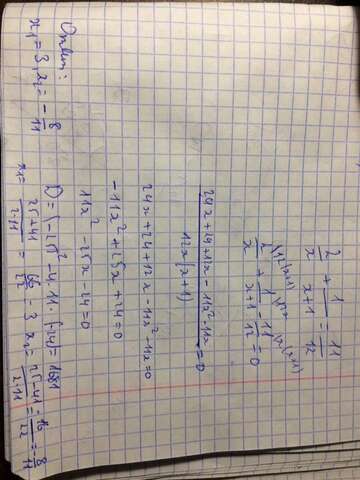 2/x + 1/(x+1) = 11/12
12(x+1) 12x x(x+1)
2/x + 1/(x+1) - 11/12 = 0
(24x+24+12x-11x²-11x)/(12x(x+1)) = 0
24x+24+12x-11x²-11x=0
-11x²+25x+24=0
11x²-25x-24=0
D=(-25)²-4·11·(-24)=1681
x₁= (25+41)/(2·11) = 66/22 = 3 x₂= (25-41)/(2·11) = -16/22 = -8/11
Ответ:
x₁=3, x₂=-8/11